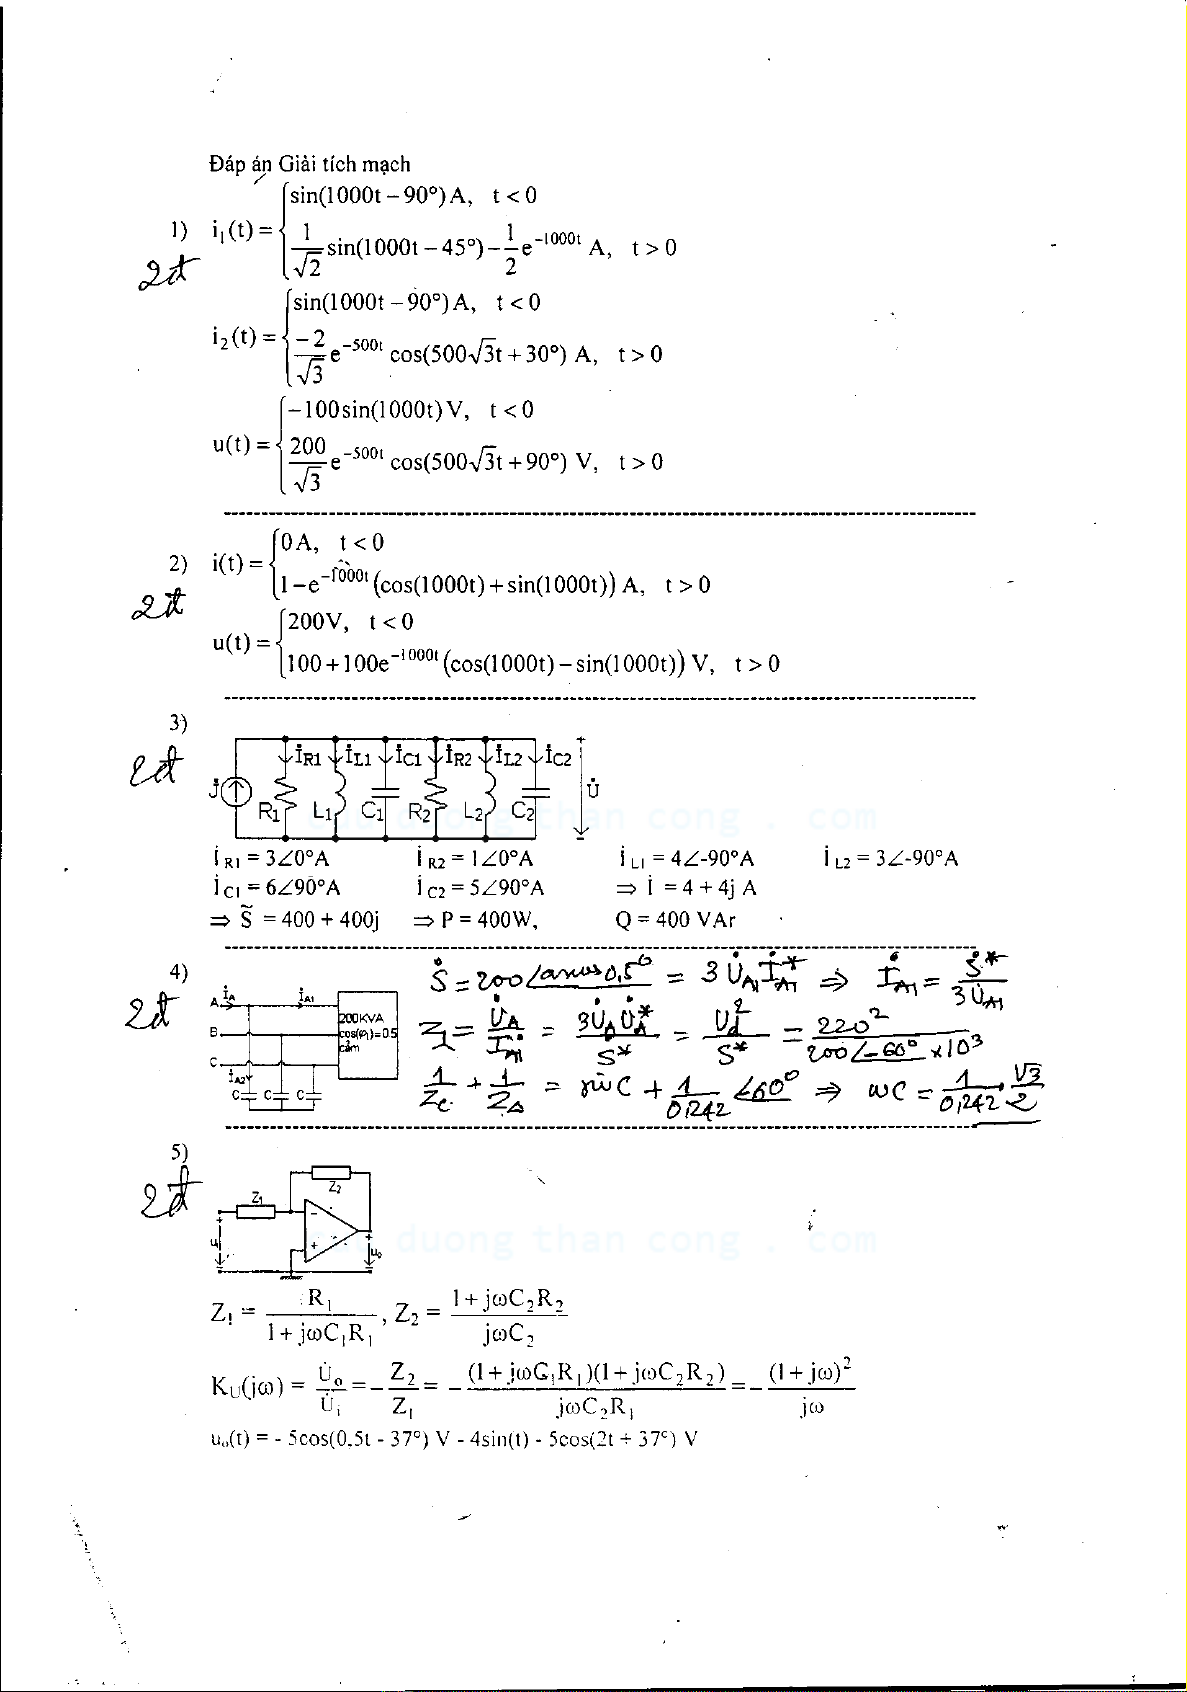 Đáp án Giải tích mạch
1) i₁(t) = { sin(1000t − 90°) A, t < 0
1/√2 sin(1000t − 45°) − 1/2 e^(−1000t) A, t > 0
2đ
i₂(t) = { sin(1000t − 90°) A, t < 0
−2/√3 e^(−500t) cos(500√3t + 30°) A, t > 0
u(t) = { −100sin(1000t) V, t < 0
200/√3 e^(−500t) cos(500√3t + 90°) V, t > 0
2) i(t) = { 0 A, t < 0
1 − e^(−1000t) (cos(1000t) + sin(1000t)) A, t > 0
2đ
u(t) = { 200V, t < 0
100 + 100e^(−1000t) (cos(1000t) − sin(1000t)) V, t > 0
3)
2đ
İR1 İL1 İC1 İR2 İL2 İC2 +
J̇ U̇
R1 L1 C1 R2 L2 C2
−
cuu duong than cong . com
İR1 = 3∠0°A İR2 = 1∠0°A İL1 = 4∠-90°A İL2 = 3∠-90°A
İC1 = 6∠90°A İC2 = 5∠90°A ⇒ İ = 4 + 4j A
⇒ S̃ = 400 + 400j ⇒ P = 400W, Q = 400 VAr
4)
2đ
A İA İA1
B
C
200KVA
cos(φ1)=0.5
cảm
İA2
C C C
Ṡ = 200∠arccos0,5° = 3U̇A1İ*A1 ⇒ İA1 = Ṡ*/3U̇A1
Z1 = U̇A/İA1 = 3U̇AU̇*A/S* = Ud²/S* = 220²/(200∠−60° ×10³)
1/Zc + 1/ZΔ = jωC + 1/0,242 ∠60° ⇒ ωC = 1/0,242 . √3/2
5)
2đ
Z1 Z2
− +
+ ui + uo
cuu duong than cong . com
Z₁ = R₁/(1 + jωC₁R₁), Z₂ = (1 + jωC₂R₂)/jωC₂
KU(jω) = U̇o/U̇i = −Z₂/Z₁ = −(1 + jωC₁R₁)(1 + jωC₂R₂)/jωC₂R₁ = −(1 + jω)²/jω
uo(t) = - 5cos(0,5t - 37°) V - 4sin(t) - 5cos(2t + 37°) V